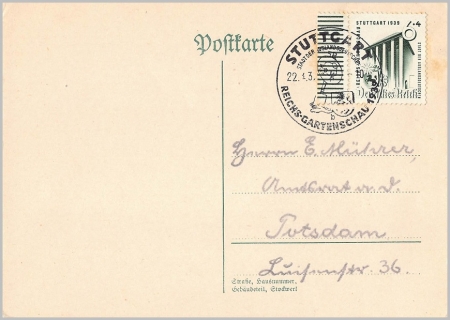 Postkarte
STUTTGART 1939
6+4
Deutsches Reich
STUTTGART
22.4.3
10
REICHS-GARTENSCHAU 1939
b
Herrn E. Mührer,
Amtsrat a.d.
Potsdam
Luisenstr. 36.
Straße, Hausnummer,
Gebäudeteil, Stockwerk